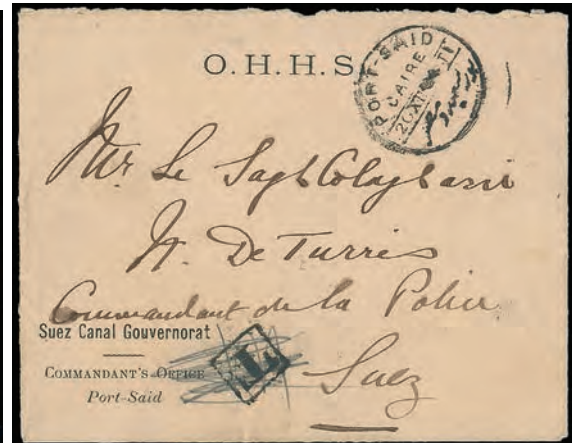 O. H. H. S.
PORT-SAID
CAIRE
20 XI
Mr Le Sagh Colaghassi
N. De Turris
Commandant de la Police
Suez Canal Gouvernorat
COMMANDANT'S OFFICE
Port-Said
T
Suez